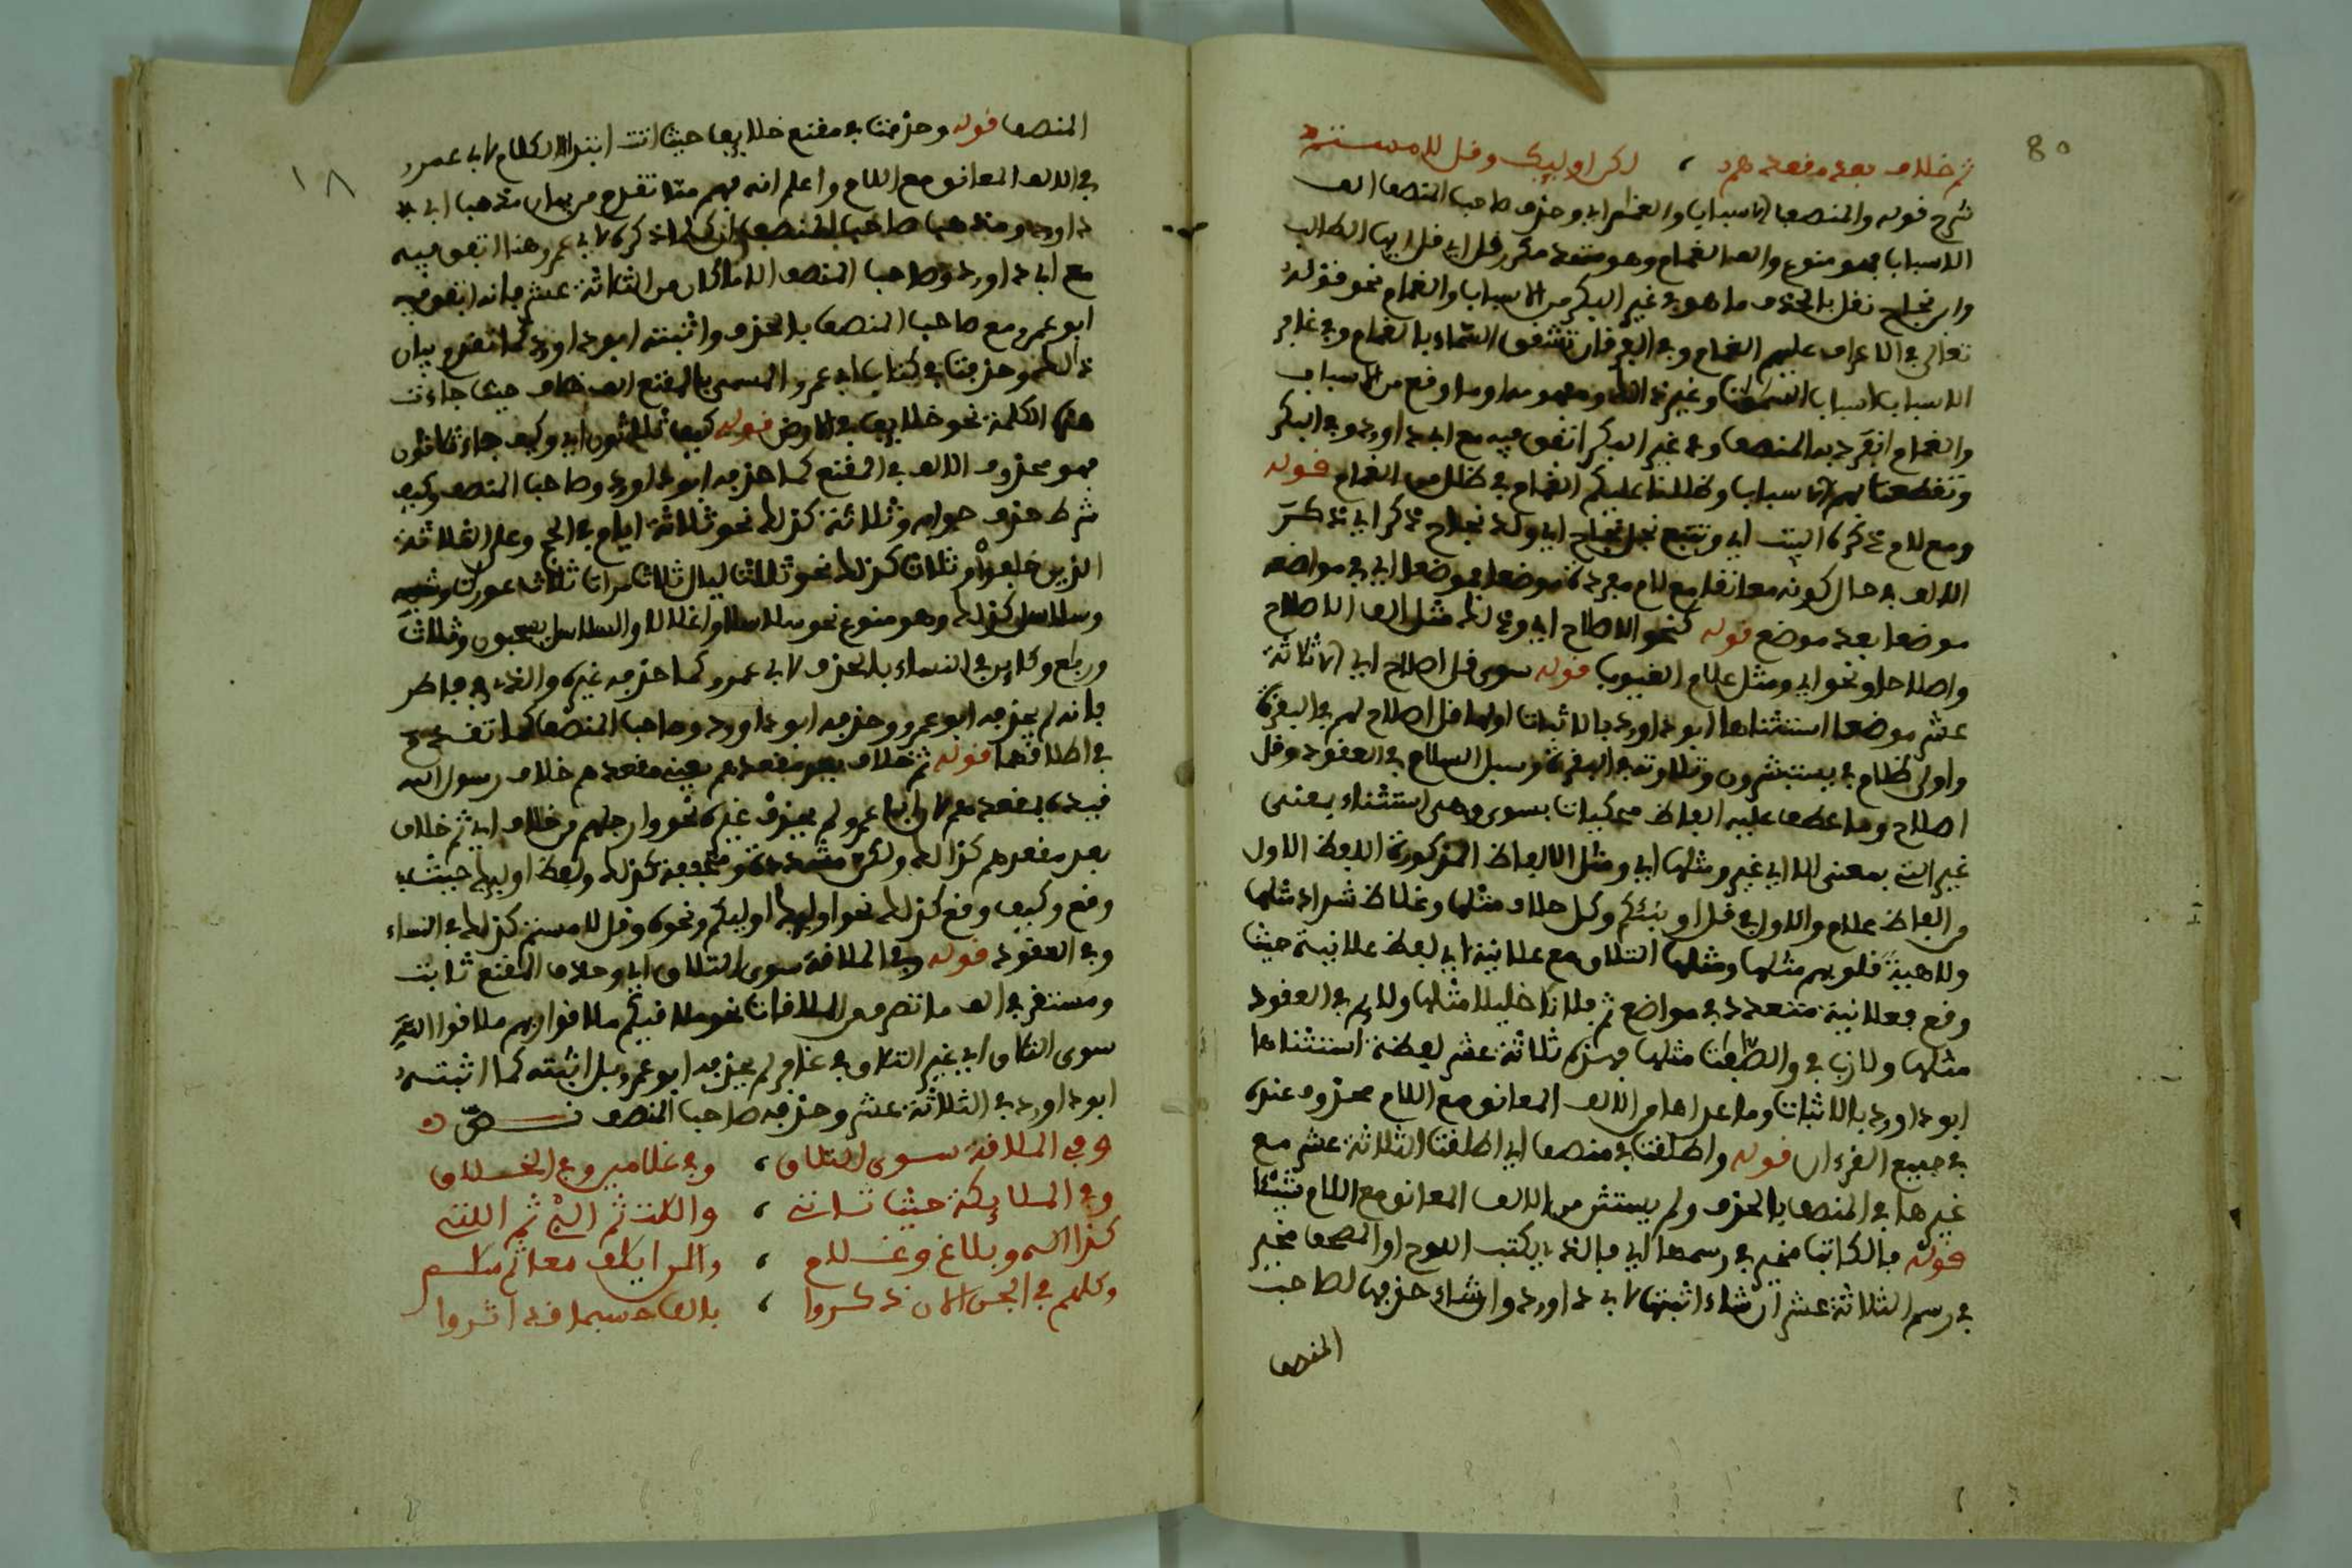 80
ثم خلاف بعد مقعدهم ، لكن اوليك وقل لامستم
شرح قوله والمنصف الاسباب والغمام ابي وحذف صاحب المنصف الف
الاسباب فهو منوع والف الغمام وهو متعدد مكرر قل اي قل ايها الطالب
وابن نجاح نقل بالحذف ما هو في غير البكر من الاسباب والغمام نحو قوله
تعالى في الاعراف عليهم الغمام وفي الفرقان تشقق السماء بالغمام وفي غافر
الاسباب اسباب السموات وغير ذلك ومفهومه وما وقع من الاسباب
والغمام انفرد به المنصف وفي غير البكر اتفق فيه مع ابي داوود وفي البكر
وتقطعت بهم الاسباب وظللنا عليكم الغمام في ظلل من الغمام قوله
ومع لام ذكره البيت اي وتتبع نجل نجاح اي ولد نجاح ذكر اي ذكر
الالف في حال كونه معانقا مع لام مفردة موضعا فموضعا اي في مواضعه
موضعا بعد موضع قوله كنحو الاصلاح اي وذلك مثل الف الاصلاح
واصلاحا ونحو اي ومثل علام الغيوب قوله سوى قل اصلاح اي الا ثلاثة
عشر موضعا استثناها ابو داوود بالاثبات اولها قل اصلاح لهم في البقرة
واولى ظلام في يستبشرون وتلاوته في البقرة وسبل السلام في العقود وقل
اصلاح وما عطف عليه الفاظ محكيات بسوى وهي استثناء بمعنى
غير التي بمعنى الا اي غير ومثلها اي ومثل الالفاظ المذكورة اللفظ الاول
من الفاظ علام والاول في قل اونبئكم وكل حلاف مثلها وغلاظ شداد مثلها
ولاهية قلوبهم مثلها ومثلها التلاق مع علانية اي لفظ علانية حيث
وقع فعلانية متعددة في مواضع ثم فلانا خليلا مثلها ولايم في العقود
مثلها ولازب في والصافات مثلها فهذه ثلاثة عشر لفظة استثناها
ابو داوود بالاثبات وما عداها من الالف المعانق مع اللام محذوف عنده
في جميع القرءان قوله واطلقت في منصف اي اطلقت الثلاثة عشر مع
غيرها في المنصف بالحذف ولم يستثن من الالف المعانق مع اللام شيئا
قوله فالكاتب مخير في رسمها اي فالذي يكتب اللوح او المصحف مخير
في رسم الثلاثة عشر ان شاء اثبتها لابي داوود وان شاء حذفها لصاحب
المنصف
١٨
المنصف قوله وحذفت في مقنع خلايف حيث اتت ابتدا الكلام لابي عمرو
في الالف المعانق مع اللام واعلم انه فهم مما تقدم من بيان مذهب ابي
داوود ومذهب صاحب المنصف ان كلما ذكره لابي عمرو هنا اتفق فيه
مع ابي داوود وصاحب المنصف الا ما كان من الثلاثة عشر فانه اتفق فيه
ابو عمرو مع صاحب المنصف بالحذف واثبته ابو داوود كما تقدم بيان
ذلك وحذفت في كتاب ابي عمرو المسمى بالمقنع الف خلاف حيث جاءت
هذه الكلمة نحو خلايف في الارض قوله كيف ثلاثون اي وكيف جاء ثلاثون
فهو محذوف الالف في المقنع كما حذفه ابو داوود وصاحب المنصف وكيف
شرط حذف جوابه وثلاثة كذلك نحو ثلاثة ايام في الحج وعلى الثلاثة
الذين خلفوا وثلاث كذلك نحو ثلاث ليال ثلاث مرات ثلاث عورات وشبهه
وسلاسل كذلك وهو منوع نحو سلاسلا واغلالا والسلاسل يسحبون وثلاث
ورباع وكاين في النساء بالحذف لابي عمرو كما حذفه غيره والذي في فاطر
فانه لم يحذفه ابو عمرو وحذفه ابو داوود وصاحب المنصف كما تقدم
في اطلاقهما قوله ثم خلاف بعد مقعدهم بعينه مقعدهم خلاف رسول الله
قيده بمقعدهم لان ابا عمرو لم يحذف غيره نحو وارجلهم من خلاف اي ثم خلاف
بعد مقعدهم كذلك ولكن مشددة ومخففة كذلك ولفظ اوليك حيث
وقع وكيف وقع كذلك نحو اوليك اوليكم ونحوه وقل لامستم كذلك في النساء
وفي العقود قوله وفي الملاقة سوى التلاق اي وحذف المقنع ثابت
ومستقر في الف ما تصرف من الملاقات نحو ملاقيكم ملاقوا ربهم ملاقوا الله
سوى التلاق اي غير التلاق في غافر لم يحذفه ابو عمرو بل اثبته كما اثبته
ابو داوود في الثلاثة عشر وحذفه صاحب المنصف نص
وفي الملاقة سوى التلاق ، وفي غلامين وفي الخلاق
وفي الملايكة حيث تاتي ، واللات ثم الئي ثم اللتي
كذا اله وبلاغ وغلام ، والن ايلاف معا ثم سلام
وكلهم في الجن الان ذكروا ، بالف حسبما قد اثروا